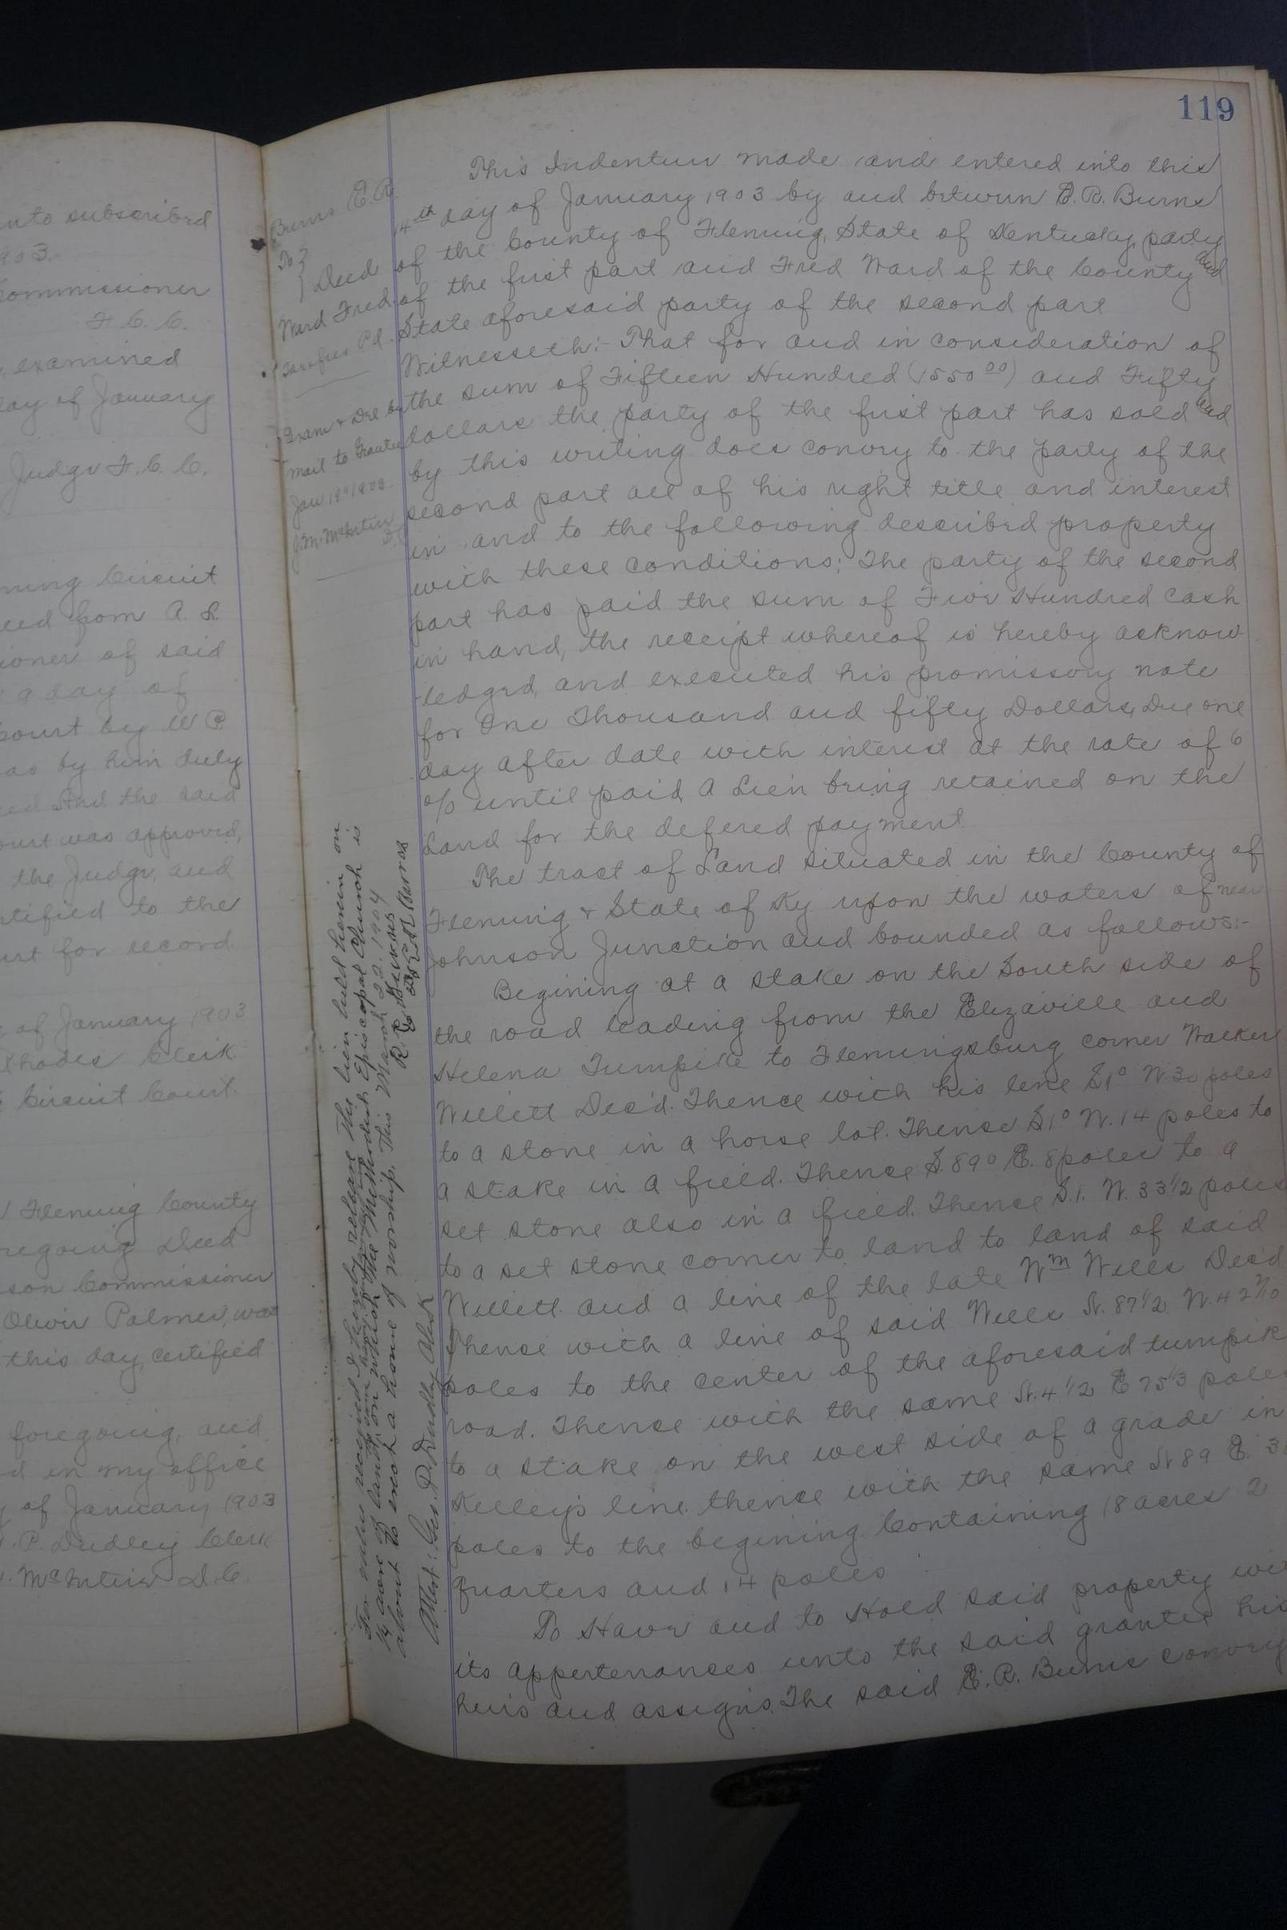 119
unto subscribed
903.
Commissioner
F. C. C.
examined
day of January
Judge F. C. C.
ming Circuit
eed from A. S.
ioner of said
a day of
Court by W P
as by him duly
ed and the said
ourt was approved,
the Judge, and
rtified to the
urt for record
of January 1903
Rhodes Clerk
Circuit Court.
Fleming County
regoing Deed
son Commissioner
Oliver Palmer, was
this day certified
foregoing, and
d in my office
y of January 1903
. P. Dudley Clerk
. McIntire D. C.
Burns E. R.
To } Deed
Ward Fred
Taxes Pd.
Exam & Del by
mail to Grantee
Jan 19" 1903
J. M. McIntire
D. C.
This Indenture made and entered into this
14th day of January 1903 by and between E. R. Burns
of the County of Fleming, State of Kentucky, party
of the first part and Fred Ward of the County and
State aforesaid party of the second part
Witnesseth:- That for and in consideration of
the sum of Fifteen Hundred (1550 00) and Fifty
dollars the party of the first part has sold and
by this writing does convey to the party of the
second part all of his right title and interest
in and to the following described property
with these conditions: The party of the second
part has paid the sum of Five Hundred cash
in hand, the receipt whereof is hereby acknow
-ledged, and executed his promissory note
for One Thousand and fifty Dollars, Due one
day after date with interest at the rate of 6
% until paid A Lien being retained on the
Land for the defered payment
The tract of Land situated in the County of
Fleming & State of Ky upon the waters of near
Johnson Junction and bounded as follows:-
Begining at a stake on the South side of
the road leading from the Elizaville and
Helena Turnpike to Flemingsburg corner Walker
Willett Dec'd. Thence with his line S1° W 30 poles
to a stone in a horse lot. Thense S1° W. 14 poles to
a stake in a field. Thence S. 89° E. 8 poles to a
set stone also in a field. Thence S. 1. W. 33 1/2 poles
to a set stone corner to land to land of said
Willett and a line of the late Wm Wells Dec'd
Thense with a line of said Wells N. 87 1/2 W. 42 7/10
poles to the center of the aforesaid turnpike
road. Thence with the same N. 4 1/2 E 75 1/3 poles
to a stake on the west side of a grade in
Kelley's line. thence with the same N 89 E. 3
poles to the begining Containing 18 acres 2
quarters and 14 poles
To Have and to Hold said property wi
its appertenances unto the said grantee his
heirs and assigns. The said E. R. Burns convey
For value received I hereby release the lien held herein on
1/4 acre of land, on which the Methodist Episcopal Church is
about to erect a house of worship. This March 22. 1904
E. R. Burns
Attest: Geo. P. Dudley Clerk